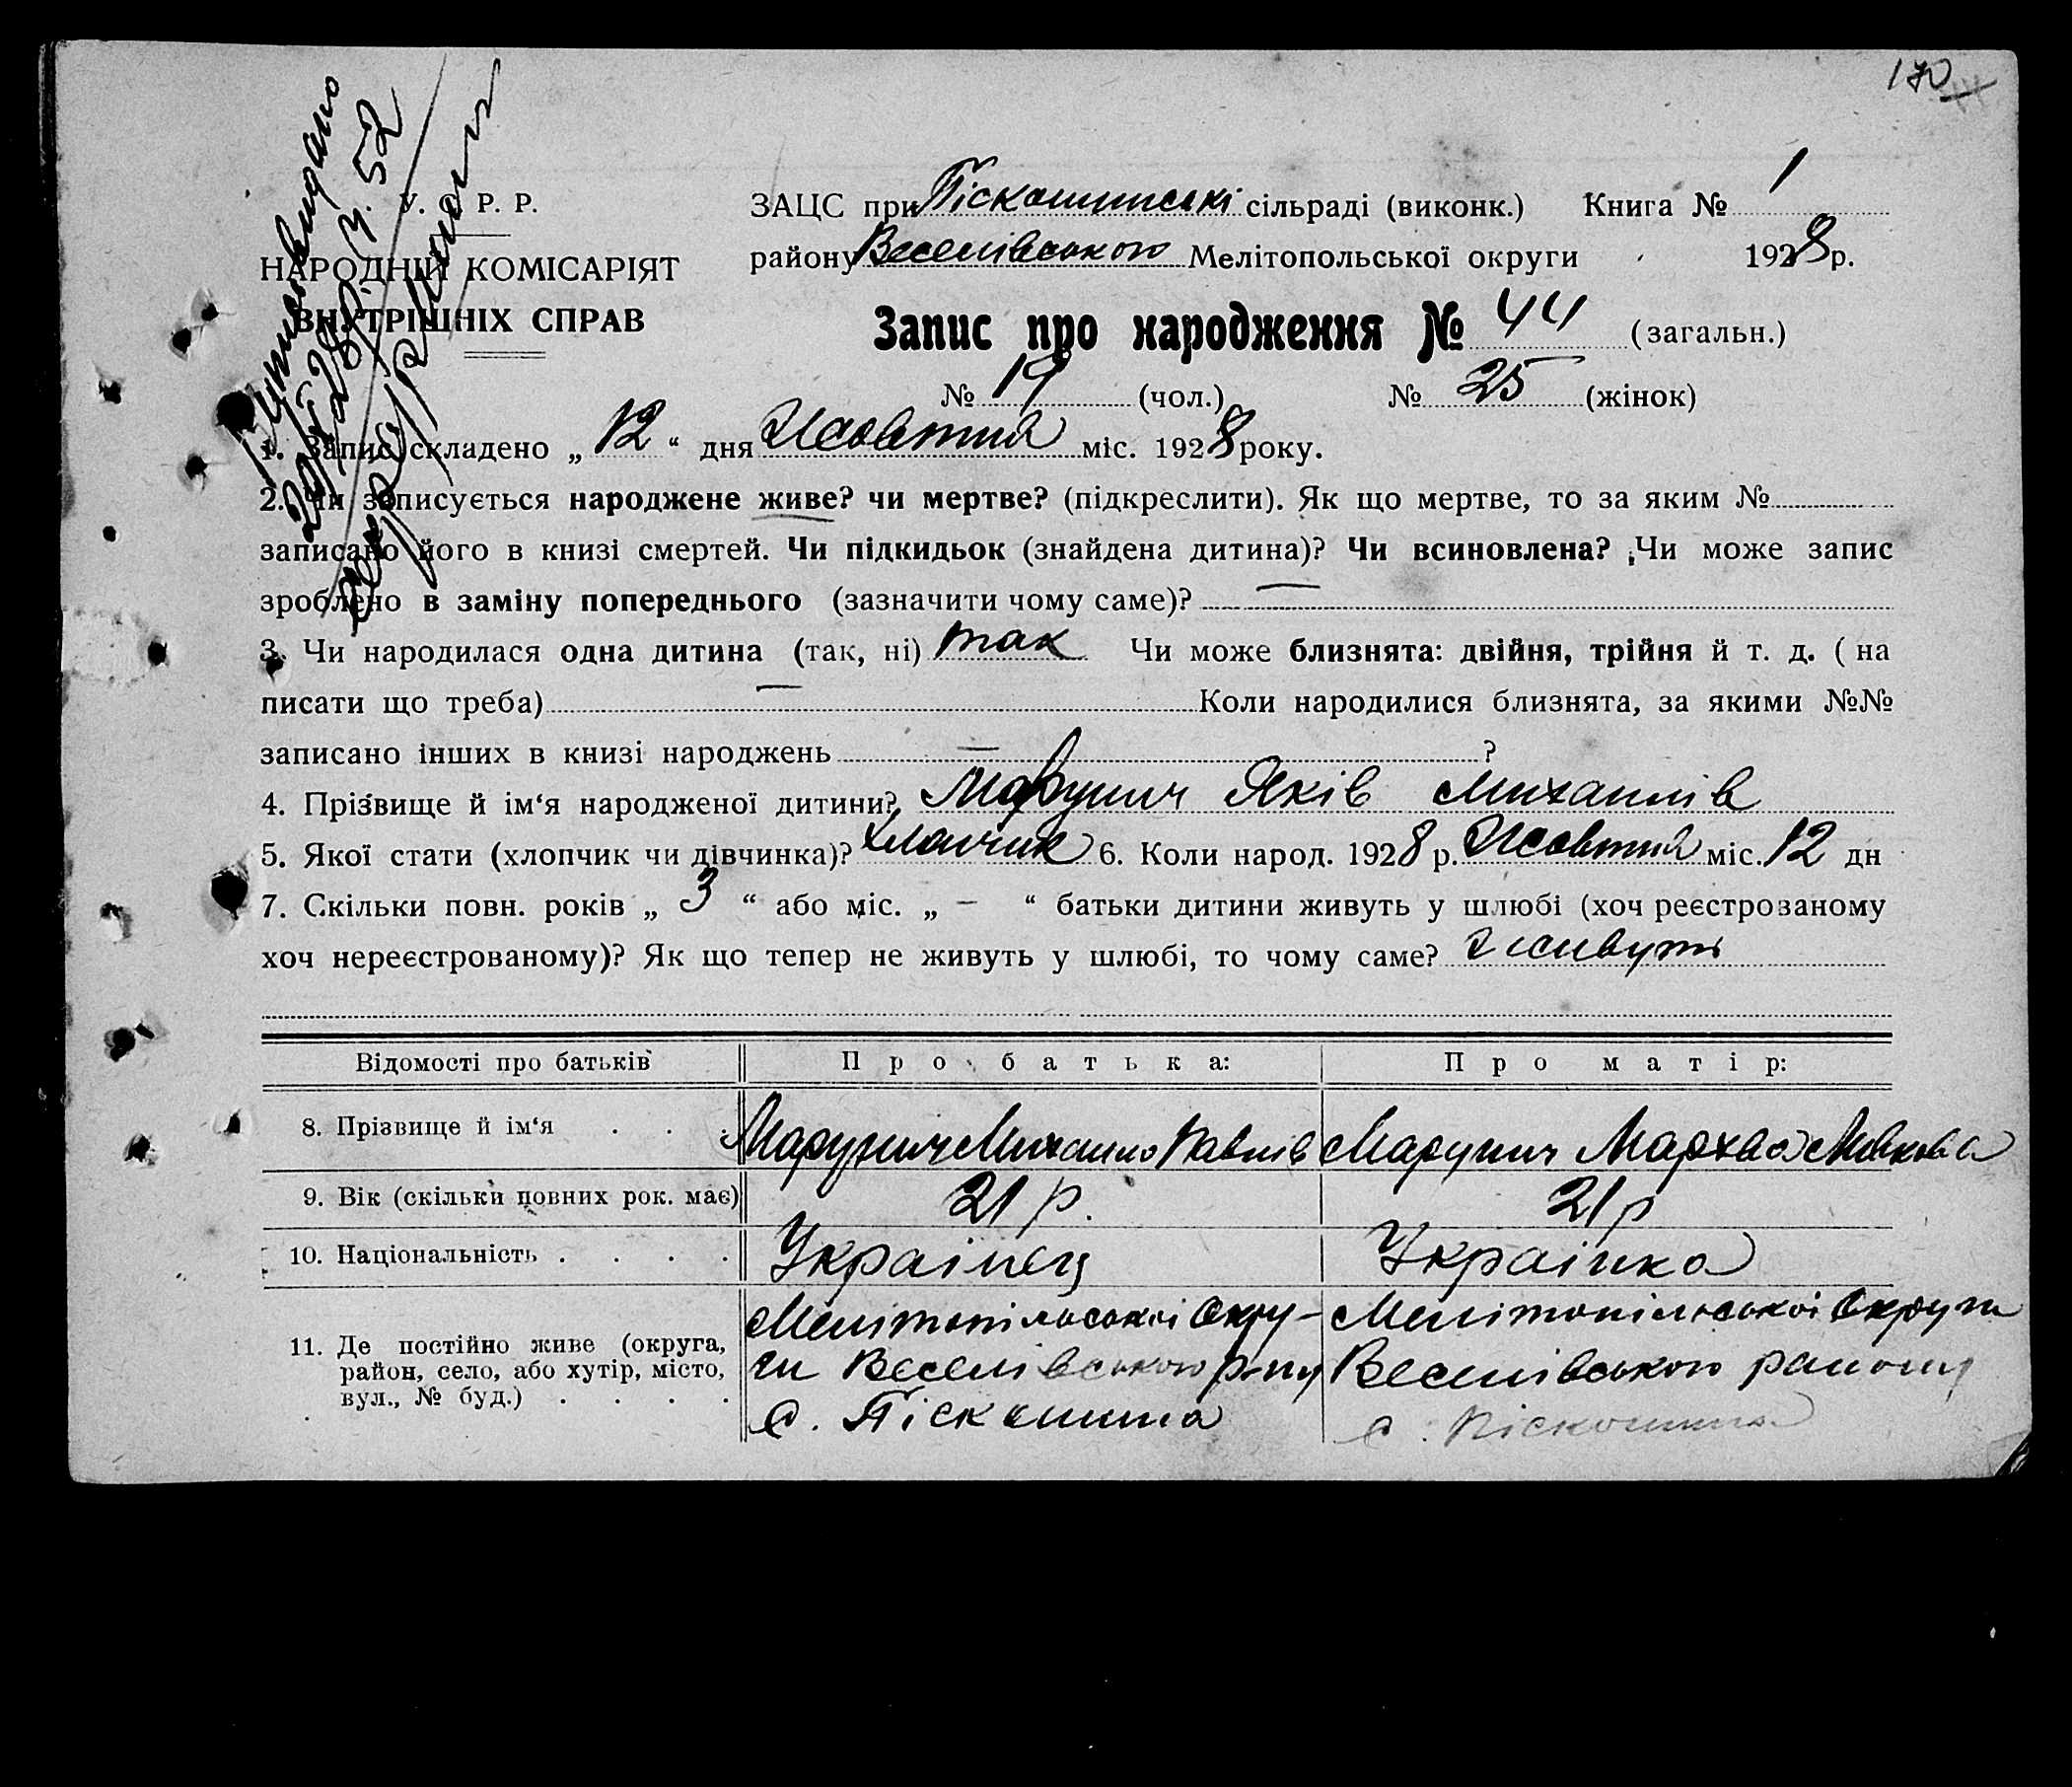 170
У. С. Р. Р.
НАРОДНІЙ КОМІСАРІЯТ
ВНУТРІШНІХ СПРАВ
ЗАЦС при Піскошинські сільраді (виконк.) Книга № 1
району Веселівського Мелітопольської округи 1928 р.
Запис про народження № 44 (загальн.)
№ 19 (чол.) № 25 (жінок)
1. Запис складено „ 12 “ дня Жовтня міс. 1928 року.
2. Чи записується народжене живе? чи мертве? (підкреслити). Як що мертве, то за яким №
записано його в книзі смертей. Чи підкидьок (знайдена дитина)? Чи всиновлена? Чи може запис
зроблено в заміну попереднього (зазначити чому саме)? —
3. Чи народилася одна дитина (так, ні) так Чи може близнята: двійня, трійня й т. д. ( на
писати що треба) — Коли народилися близнята, за якими №№
записано інших в книзі народжень — ?
4. Прізвище й ім‘я народженої дитини? Марунич Яків Михайлів
5. Якої стати (хлопчик чи дівчинка)? хлопчик 6. Коли народ. 1928 р. Жовтня міс. 12 дн
7. Скільки повн. років „ 3 “ або міс. „ – “ батьки дитини живуть у шлюбі (хоч реєстрованому
хоч нереєстрованому)? Як що тепер не живуть у шлюбі, то чому саме? живуть
Відомості про батьків Про батька: Про матір:
8. Прізвище й ім‘я . . . Марунич Михайло Павлів Марунич Мархва
9. Вік (скільки повних рок. має) 21 р. 21 р
10. Національність . . . . Українец Українка
11. Де постійно живе (округа,
район, село, або хутір, місто,
вул., № буд.) . . . .
Мелітопільської Окру-
ги Веселівського р-ну
с. Піскошина
Мелітопільської Округи
Веселівського району
с. Піскошина